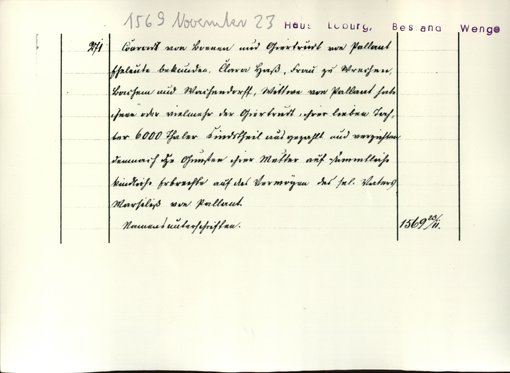 1569 November 23 Haus Loburg, Bestand Wenge
271 Coaradt von Boenen und Geertrudt von Pallant
Eheleute bekunden, Clara Haß, Frau zu Brechen,
Bachem und Wachendorff, Wittwe von Pallant habe
ihnen oder vielmehr der Geertrudt ihrer lieben Toch-
ter 6000 Thaler Kindstheil ausgezahlt und verzichten
demnach zu Gunsten ihrer Mutter auf sämmtliche
kindliche Erbrechte auf das Vermögen des sel. Vaters
Marselis von Pallant.
Namensunterschriften. 1569 23/11.